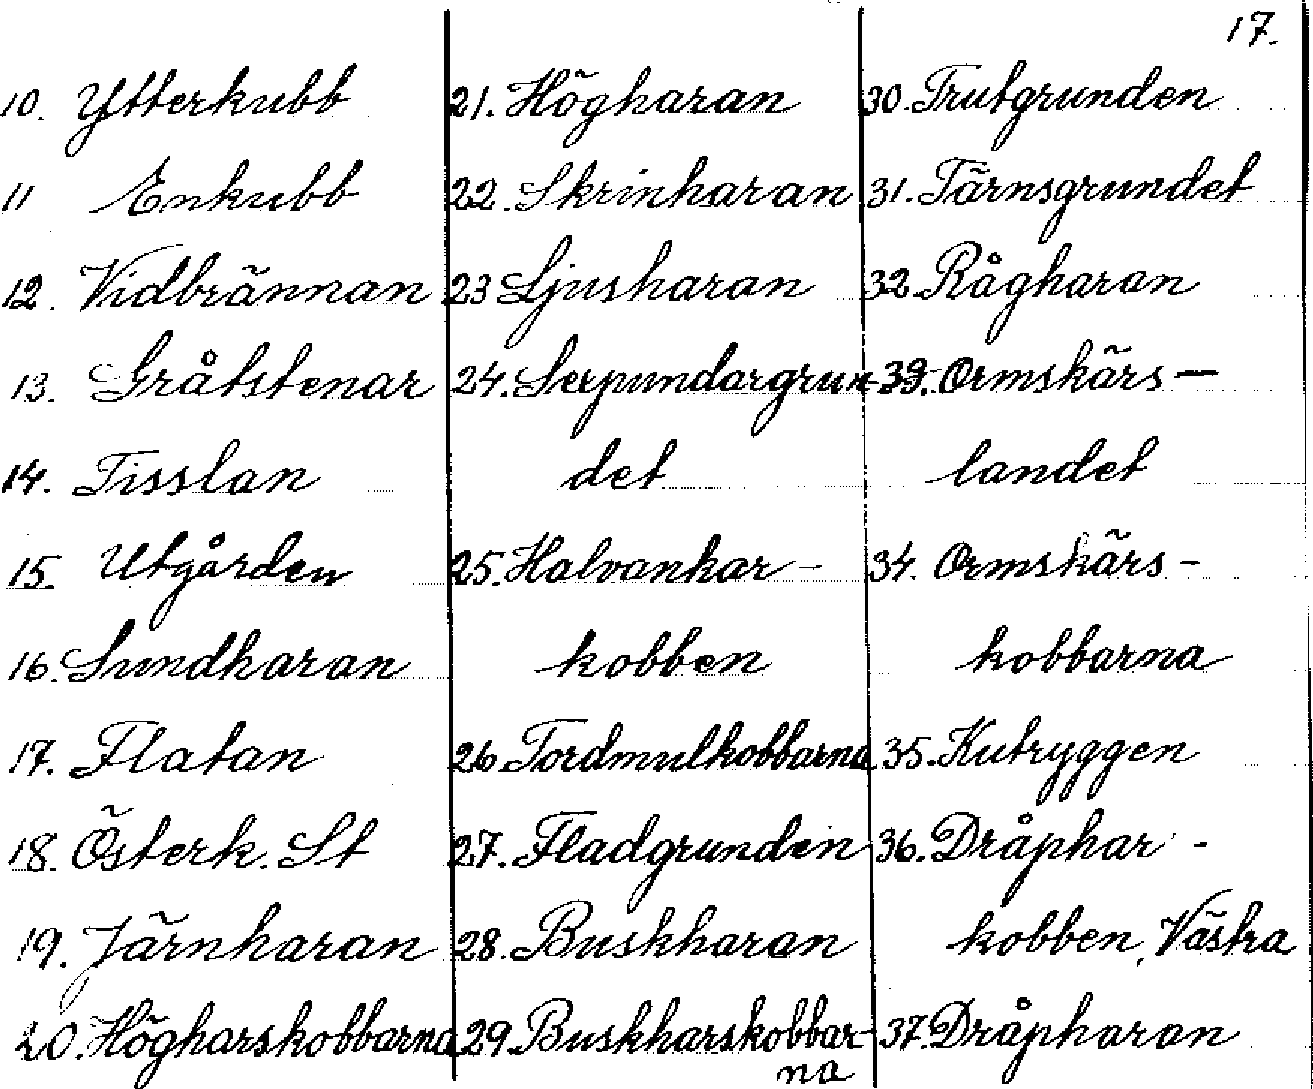 17.
10. Ytterkubb
11 Enkubb
12. Vidbrännan
13. Gråtstenar
14. Tisslan
15. Utgården
16. Sundharan
17. Flatan
18. Österk. St
19. Järnharan
20. Högharskobbarna
21. Högharan
22. Skrinharan
23 Ljusharan
24. Serpundargrun-
det
25. Halvankar-
kobben
26. Tordmulkobbarna
27. Fladgrunden
28. Buskharan
29. Buskharskobbar-
na
30. Trutgrunden
31. Tärnsgrundet
32. Rågharan
33. Ormskärs-
landet
34. Ormskärs-
kobbarna
35. Kutryggen
36. Dråphar-
kobben, Västra
37. Dråpharan